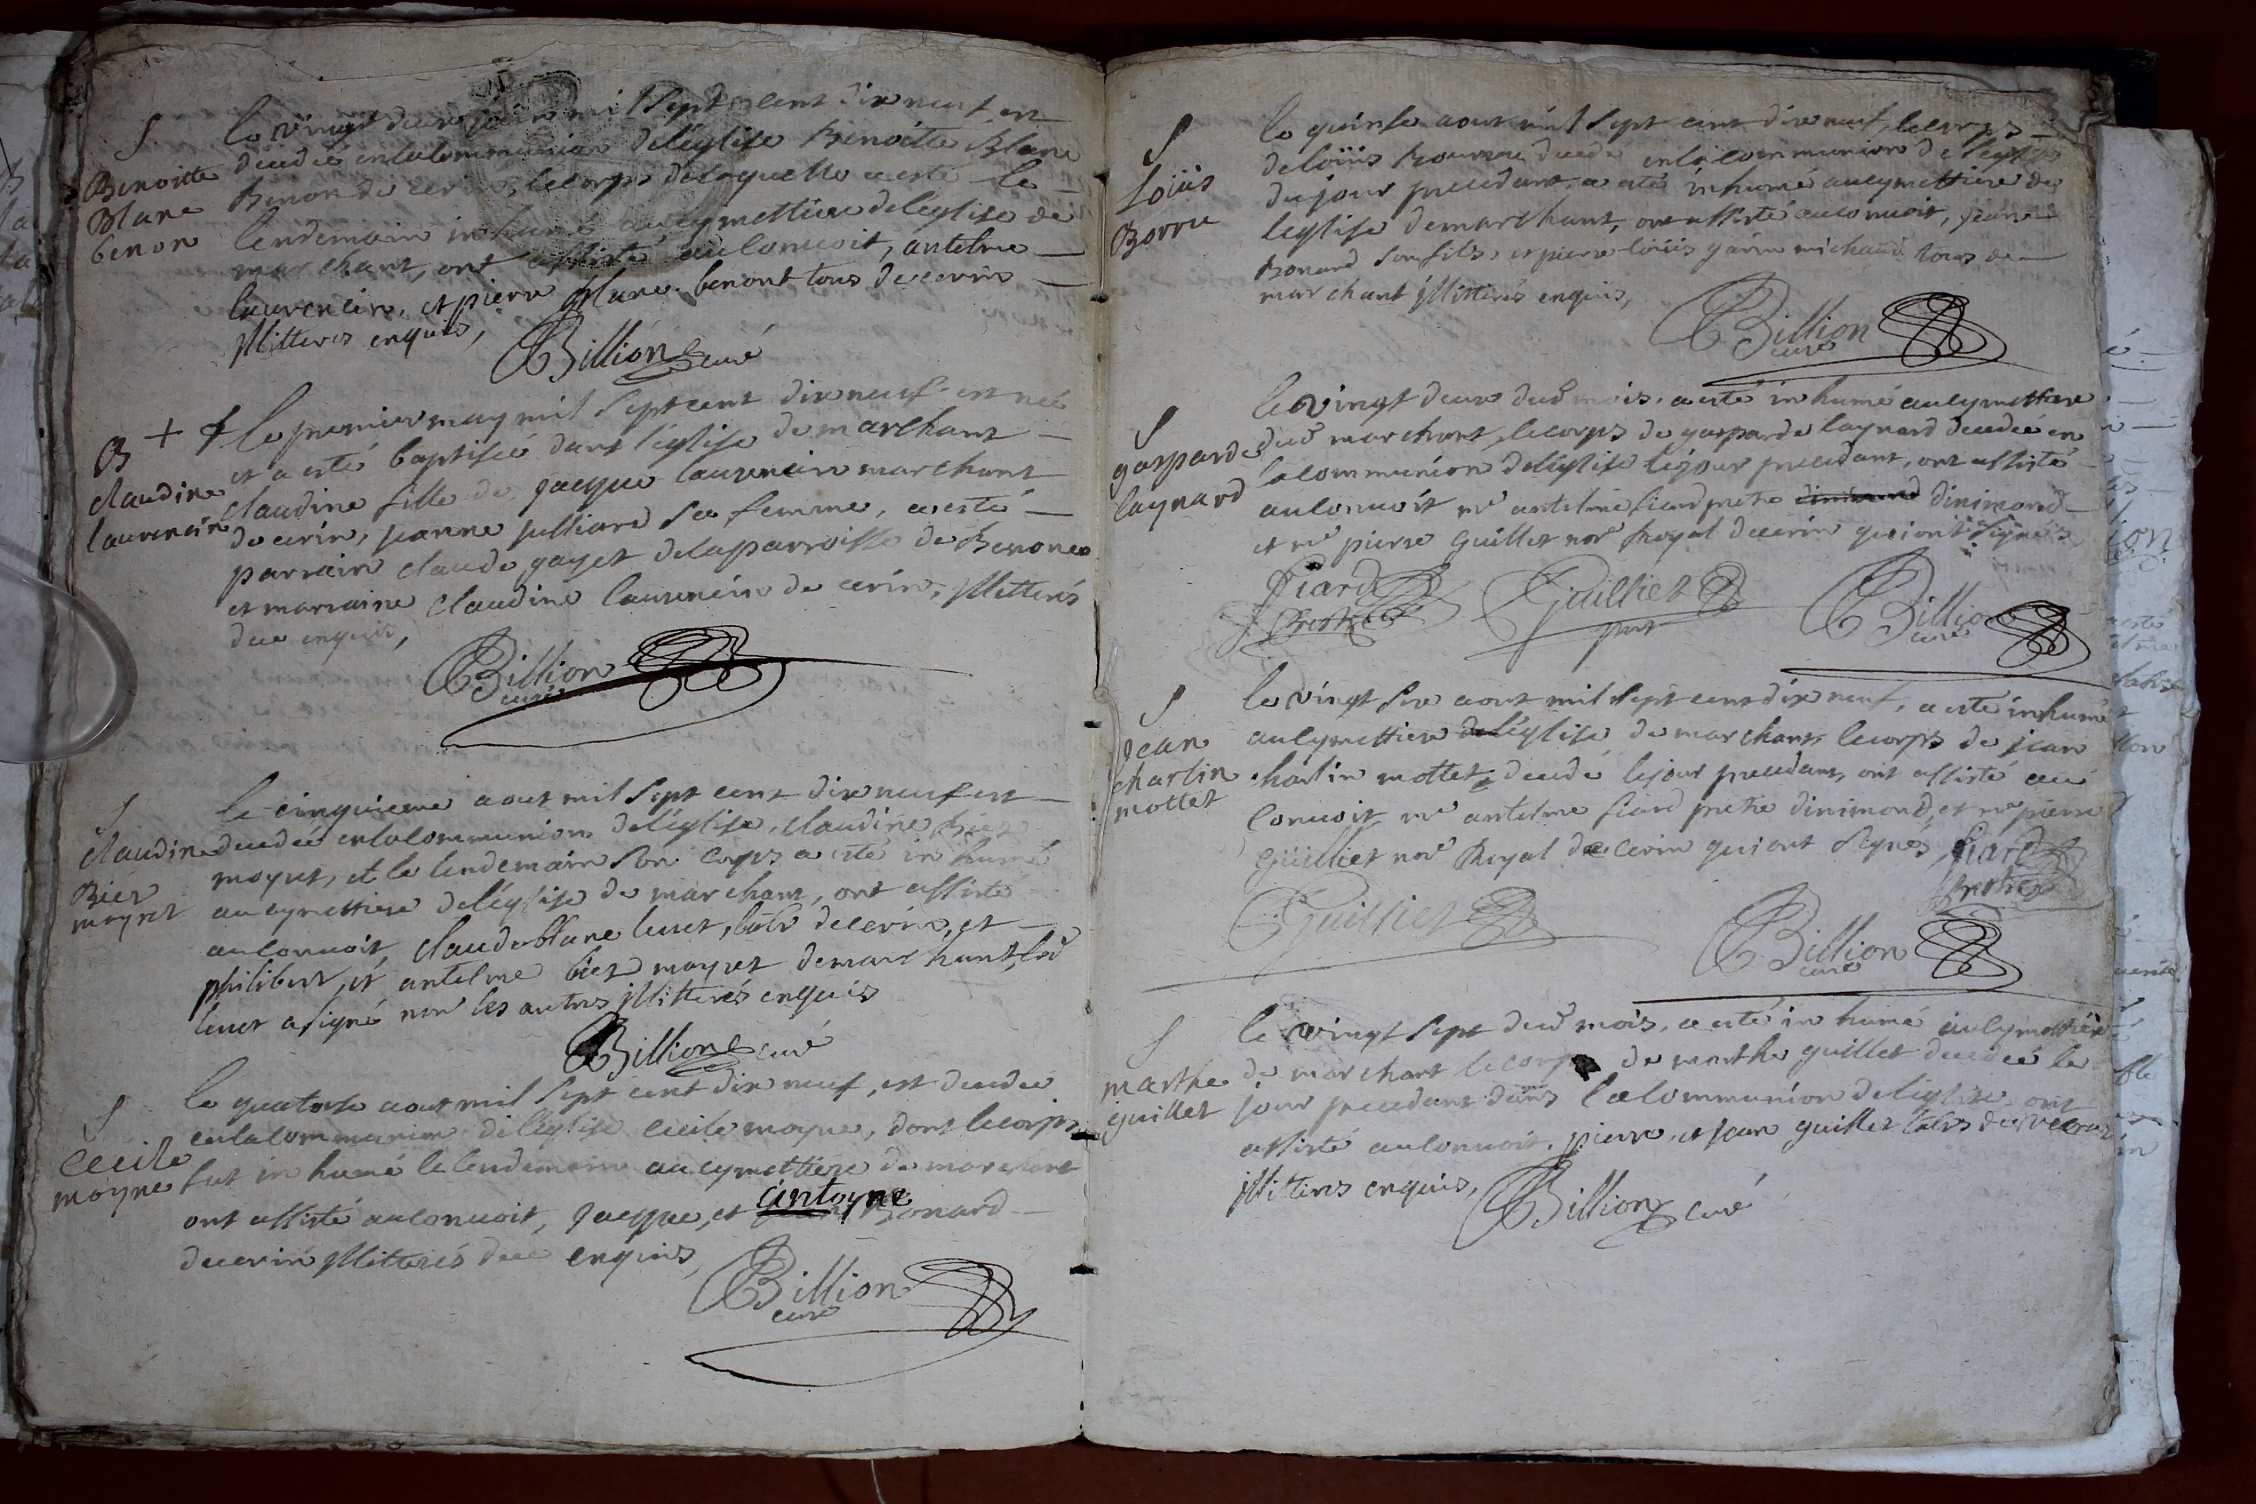 S
Benoitte
Blanc
benon
le vingt deux juin mil sept cent dix neuf est
decedée en la communion de léglise Benoitte Blanc
Benon de cerin, le corps de laquelle a esté le
lendemain inhumé au cymettiere de léglise de
marchant, ont assisté au convoit, antelme
laurencin, et pierre blanc benont tous de cerin
illitteres enquis,
Billion curé
B + f
claudine
laurencin
le premier may mil sept cent dix neuf est née
et a esté baptisée dans l'église de marchant
claudine fille de jacque laurencin marchant
de cerin, jeanne julliard sa femme, a esté
parrain claude gayet de la parroisse de Benone
et marraine claudine laurencin de cerin, illitterés
deue enquis,
Billion
curé
S
claudine
Biet
moyret
le cinquieme aout mil sept cent dix neuf est
decedée en la communion de léglise, claudine Biet
moyret, et le lendemain son corps a esté inhumé
au cymettiere de léglise de marchant, ont assisté
au convoit, claude blanc luret, de cerin, et
philibert, et antelme biet moyret de marchant, led
luret a signé non les autres illitterés enquis
Billion curé
S
Cecile
moyne
le quatorse aout mil sept cent dix neuf, est decedée
en la communion de léglise cecile moyne, dont le corps
fut inhumé le lendemain au cymettiere de marchant
ont assisté au convoit, jacque, et antoyne Bonard
de cerin illitterés deue enquis,
Billion
curé
S
Loüis
Borru
le quinse aout mil sept cent dix neuf, le corps
de loüis decedé en la communion de léglise
du jour precedant, a esté inhumé au cymettiere de
léglise de marchant, ont assisté au convoit, jean
Bonard son fils, et pierre loüis michaud tous de
marchant illitterés enquis,
Billion
curé
S
gasparde
laynard
le vingt deux dud mois, a esté inhumé au cymettiere
dud marchant, le corps de gasparde laynard decedée en
la communion de léglise le jour precedant, ont assisté
au convoit mr antelme fiard pretre dinimond
et me pierre guillet nore Royal de cerin qui ont signés
fiard
prestre
Guilliet
pnt
Billion
curé
S
jean
charlin
mottet
le vingt six aout mil sept cent dix neuf, a esté inhumé
au cymettiere de léglise de marchant, le corps de jean
charlin mottet, decedé le jour precedant, ont assisté au
convoit mr antelme fiard pretre dinimond, et me pierre
Guilliet nore Royal de cerin qui ont signés, fiard
prestre
Guilliet
Billion
curé
S
marthe
guillet
le vingt sept dud mois, a esté inhumé au cymettiere
de marchant le corps de marthe guillet decedée le
jour precedant dans la communion de léglise, ont
assisté au convoit, pierre, et jean guillet
illitterés enquis,
Billion curé